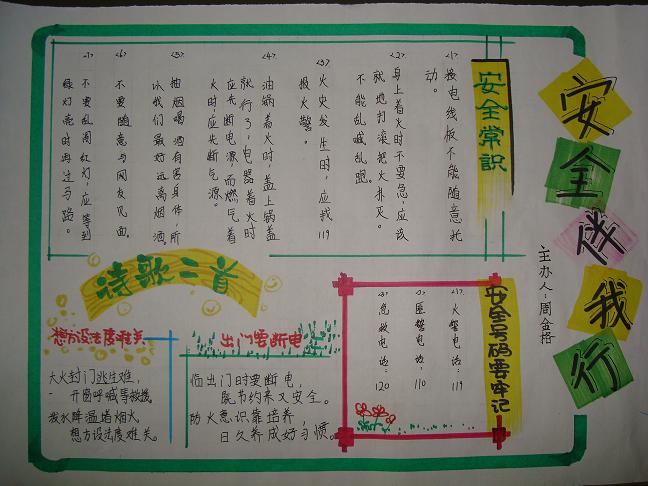 安全伴我行
主办人：周金格
安全常识
(1) 接电线板不能随意托
动。
(2) 身上着火时不要急，应该
就地打滚把火扑灭。
不能乱喊乱跑。
(3) 火灾发生时，应拨119
报火警。
(4) 油锅着火时，盖上锅盖
就行了，电器着火时
应先断电源，而燃气着
火时，应先断气源。
(5) 抽烟喝酒有害身体，所
以我们最好远离烟酒。
(6) 不要随意与网友见面。
(7) 不要乱闯红灯，应等到
绿灯亮时再过马路。
安全号码要牢记
(1) 火警电话：119
(2) 匪警电话：110
(3) 急救电话：120
诗歌二首
出门要断电
临出门时要断电，
既节约来又安全。
防火意识靠培养，
日久养成好习惯。
想方设法度难关
大火封门逃生难，
开窗呼喊等救援
泼水降温堵烟火，
想方设法度难关。